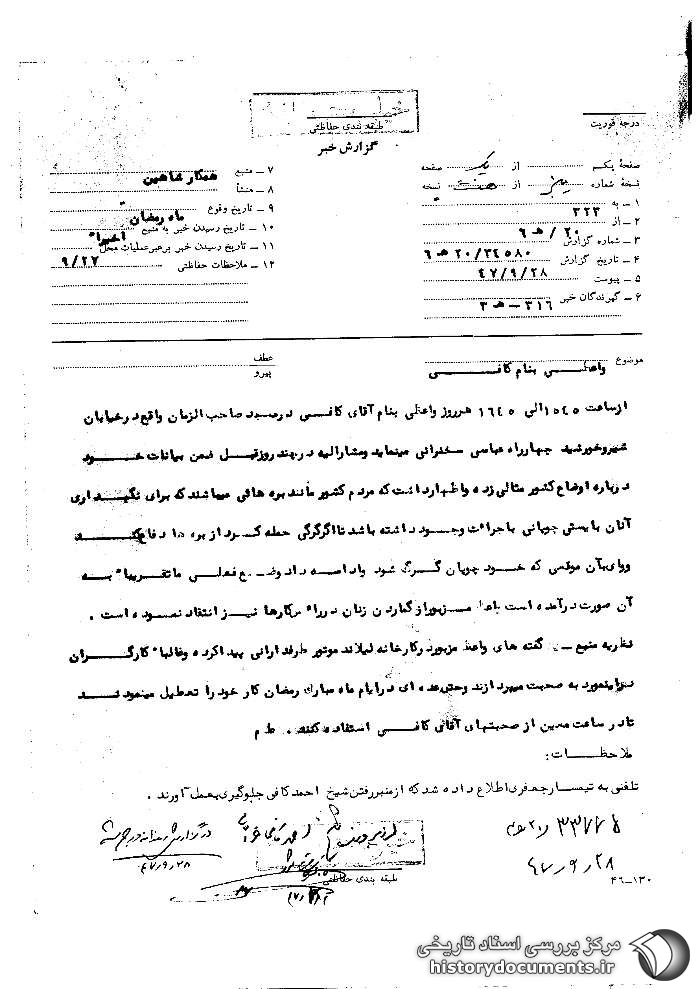 طبقه بندی حفاظتی
گزارش خبر
درجه فوریت
صفحه یکم از یک صفحه
نسخه شماره از نسخه
۱ – به ۳۲۳
۲ – از ۲۰ / هـ ۶
۳ – شماره گزارش ۶ هـ ۲۰/۳۴۵۸۰
۴ – تاریخ گزارش ۴۷/۹/۲۸
۵ – پیوست
۶ – گیرندگان خبر ۳۱۶ – هـ ۳
۷ – منبع همکار شاهین
۸ – منشأ
۹ – تاریخ وقوع ماه رمضان
۱۰ – تاریخ رسیدن خبر به منبع اخیرا"
۱۱ – تاریخ رسیدن خبر برهبر عملیات محل ۹/۲۷
۱۲ – ملاحظات حفاظتی
موضوع واعظی بنام کافی
عطف
پیرو
ازساعت ۱۵۴۵ الی ۱۶۴۵ هرروز واعظی بنام آقای کافی درمسجد صاحب الزمان واقع درخیابان
شیروخورشید چهارراه عباسی سخنرانی مینماید ومشارالیه درچند روزقبل ضمن بیانات خود
درباره اوضاع کشور مثالی زده واظهارداشت که مردم کشور مانند بره هائی میباشند که برای نگهداری
آنان بایستی چوپانی باجرات وجود داشته باشد تااگرگرگی حمله کرد از بره ها دفاع کند
ووای بآن موقعی که خود چوپان گرگ شود وادامه داد وضع فعلی ما تقریبا" به
آن صورت درآمده است واعظ مزبوراز گماردن زنان درراس کارها نیز انتقاد نموده است .
نظریه منبع – گفته های واعظ مزبوردرکارخانه لیلاند موتور طرفدارانی پیداکرده وغالبا" کارگران
دراینمورد به صحبت میپردازند وحتی عده ای درایام ماه مبارک رمضان کار خود را تعطیل مینمودند
تادر ساعت معین از صحبتهای آقای کافی استفاده کنند . ط م
ملاحظات :
تلفنی به تیمسار جعفری اطلاع داده شد که ازمنبررفتن شیخ احمد کافی جلوگیری بعمل آورند .
۴۷٫۹٫۲۸
۴۷٫۹٫۲۸
طبقه بندی حفاظتی
۴۶–۱۳۰
مرکز بررسی اسناد تاریخی
historydocuments.ir